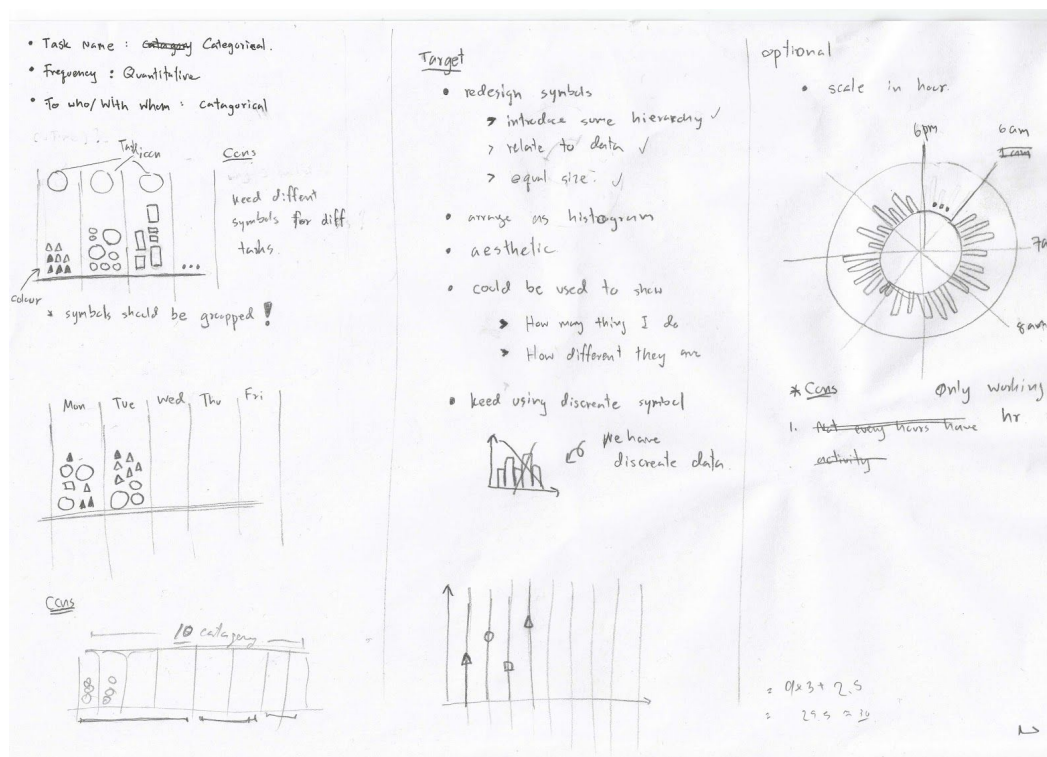 • Task Name : catagory Categorical.
• Frequency : Quantitative
• To who/With whom : catagorical
Task icon
Cons
need diffent
symbols for diff.
tasks.
colour
* symbols should be groupped !
Mon Tue Wed Thu Fri
Cons
10 catagory
Target
• redesign symbols
> introduce some hierarchy ✓
> relate to data ✓
> equal size. ✓
• arrange as histogram
• aesthetic
• could be used to show
> How many thing I do
> How different they are
• keed using discreate symbol
We have
discreate data.
optional
• scale in hour.
6pm
6am
7a
8am
* Cons
Only working
hr
1. Not every hours have
activity
= 9x3 + 2.5
= 29.5 ≈ 30